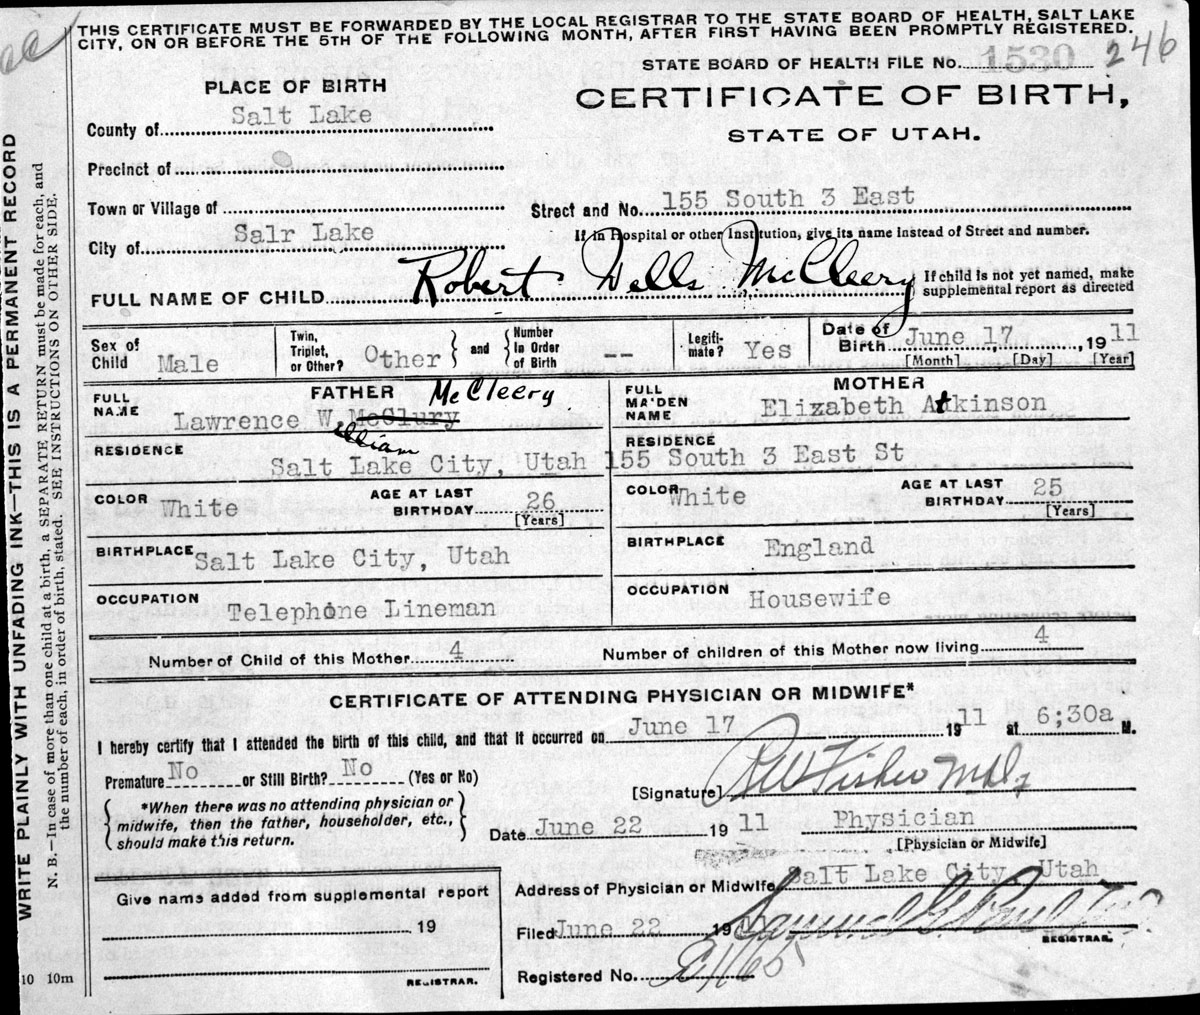 THIS CERTIFICATE MUST BE FORWARDED BY THE LOCAL REGISTRAR TO THE STATE BOARD OF HEALTH, SALT LAKE
CITY, ON OR BEFORE THE 5TH OF THE FOLLOWING MONTH, AFTER FIRST HAVING BEEN PROMPTLY REGISTERED.
STATE BOARD OF HEALTH FILE No. 1530 246
PLACE OF BIRTH
CERTIFICATE OF BIRTH,
STATE OF UTAH.
County of Salt Lake
Precinct of
Town or Village of
Street and No. 155 South 3 East
City of Salr Lake
If in Hospital or other Institution, give its name instead of Street and number.
FULL NAME OF CHILD Robert Wells McCleery
If child is not yet named, make
supplemental report as directed
Sex of Child Male
Twin, Triplet, or Other? Other
and Number In Order of Birth --
Legiti-mate? Yes
Date of Birth June 17, 1911
[Month] [Day] [Year]
FATHER
FULL NAME Lawrence W. McClury
illiam
McCleery
MOTHER
FULL MA'DEN NAME Elizabeth Atkinson
RESIDENCE Salt Lake City, Utah
RESIDENCE 155 South 3 East St
COLOR White
AGE AT LAST BIRTHDAY 26
[Years]
COLOR White
AGE AT LAST BIRTHDAY 25
[Years]
BIRTHPLACE Salt Lake City, Utah
BIRTHPLACE England
OCCUPATION Telephone Lineman
OCCUPATION Housewife
Number of Child of this Mother 4
Number of children of this Mother now living 4
CERTIFICATE OF ATTENDING PHYSICIAN OR MIDWIFE*
I hereby certify that I attended the birth of this child, and that it occurred on June 17 1911 at 6;30a M.
Premature No or Still Birth? No (Yes or No)
[Signature] R W Fisher
*When there was no attending physician or
midwife, then the father, householder, etc.,
should make this return.
Date June 22 1911 Physician
[Physician or Midwife]
Address of Physician or Midwife Salt Lake City, Utah
Give name added from supplemental report
19
REGISTRAR.
Filed June 22 1911
REGISTRAR.
Registered No.
WRITE PLAINLY WITH UNFADING INK—THIS IS A PERMANENT RECORD
N. B.—In case of more than one child at a birth, a SEPARATE RETURN must be made for each, and
the number of each, in order of birth, stated. SEE INSTRUCTIONS ON OTHER SIDE.
10 10m